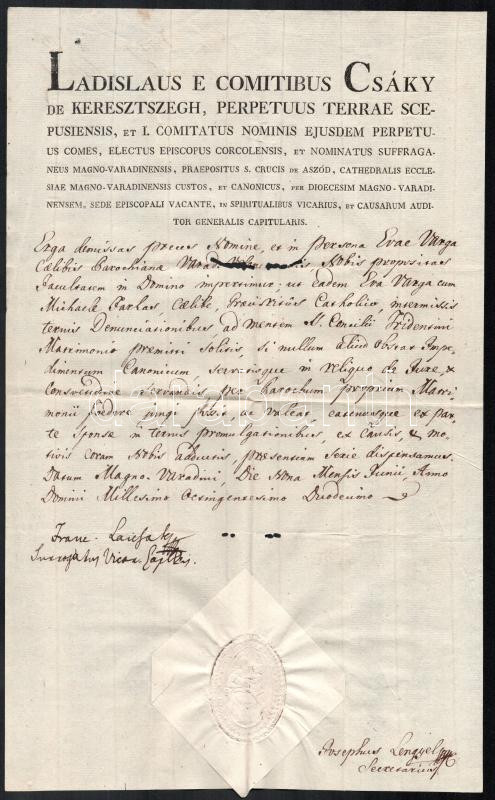 LADISLAUS E COMITIBUS CSÁKY
DE KERESZTSZEGH, PERPETUUS TERRAE SCE-
PUSIENSIS, ET I. COMITATUS NOMINIS EJUSDEM PERPETU-
US COMES, ELECTUS EPISCOPUS CORCOLENSIS, ET NOMINATUS SUFFRAGA-
NEUS MAGNO-VARADINENSIS, PRAEPOSITUS S. CRUCIS DE ASZÓD, CATHEDRALIS ECCLE-
SIAE MAGNO-VARADINENSIS CUSTOS, ET CANONICUS, PER DIOECESIM MAGNO-VARADI-
NENSEM, SEDE EPISCOPALI VACANTE, IN SPIRITUALIBUS VICARIUS, ET CAUSARUM AUDI-
TOR GENERALIS CAPITULARIS.
Erga demissas preces Nomine, et in Persona Evae Varga
Caelibis Parochiana Nobis propositas
Facultatem in Domino impertimur, ut eadem Eva Varga cum
Michaele Farkas Caelibe, Catholico, intermissis
ternis Denunciationibus ad mentem S. Concilii Tridentini
Matrimonio praemitti solitis, si nullum aliud obstat Impe-
dimentum Canonicum, servatisque in reliquo de Jure, &
Consvetudine servandis, per Parochum proprium Matri-
monii foedere jungi possit, ac valeat, eatenusque ex par-
te Sponsae in ternis promulgationibus, ex Causis, & mo-
tivis coram Nobis adductis, praesentium serie dispensamus.
Datum Magno-Varadini, Die Nona Mensis Junii, Anno
Domini Millesimo Octingentesimo Duodecimo
Franc.
Surrogatus Vicar.
Josephus Lengyel
Secretarius